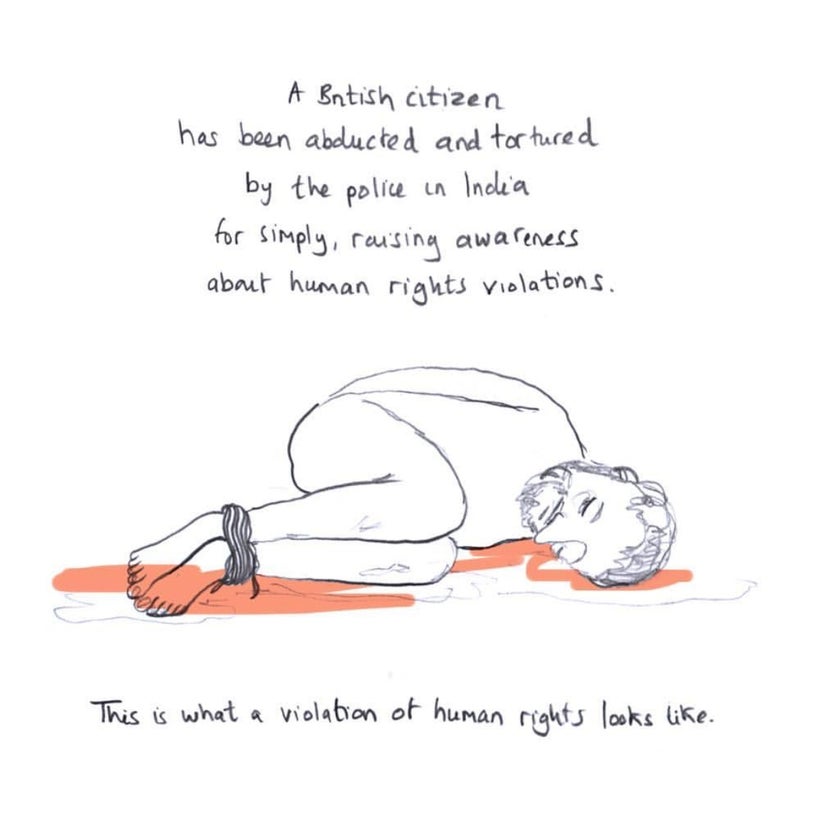 A British citizen
has been abducted and tortured
by the police in India
for simply, raising awareness
about human rights violations.
This is what a violation of human rights looks like.